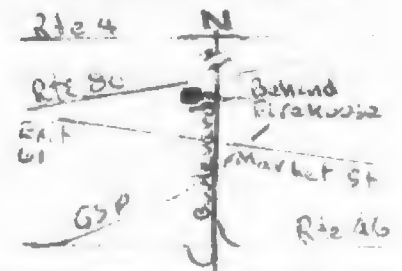 N
Rte 4
Rte 80
Behind
Firehouse
Exit
61
Market St
GSP
Rte 46